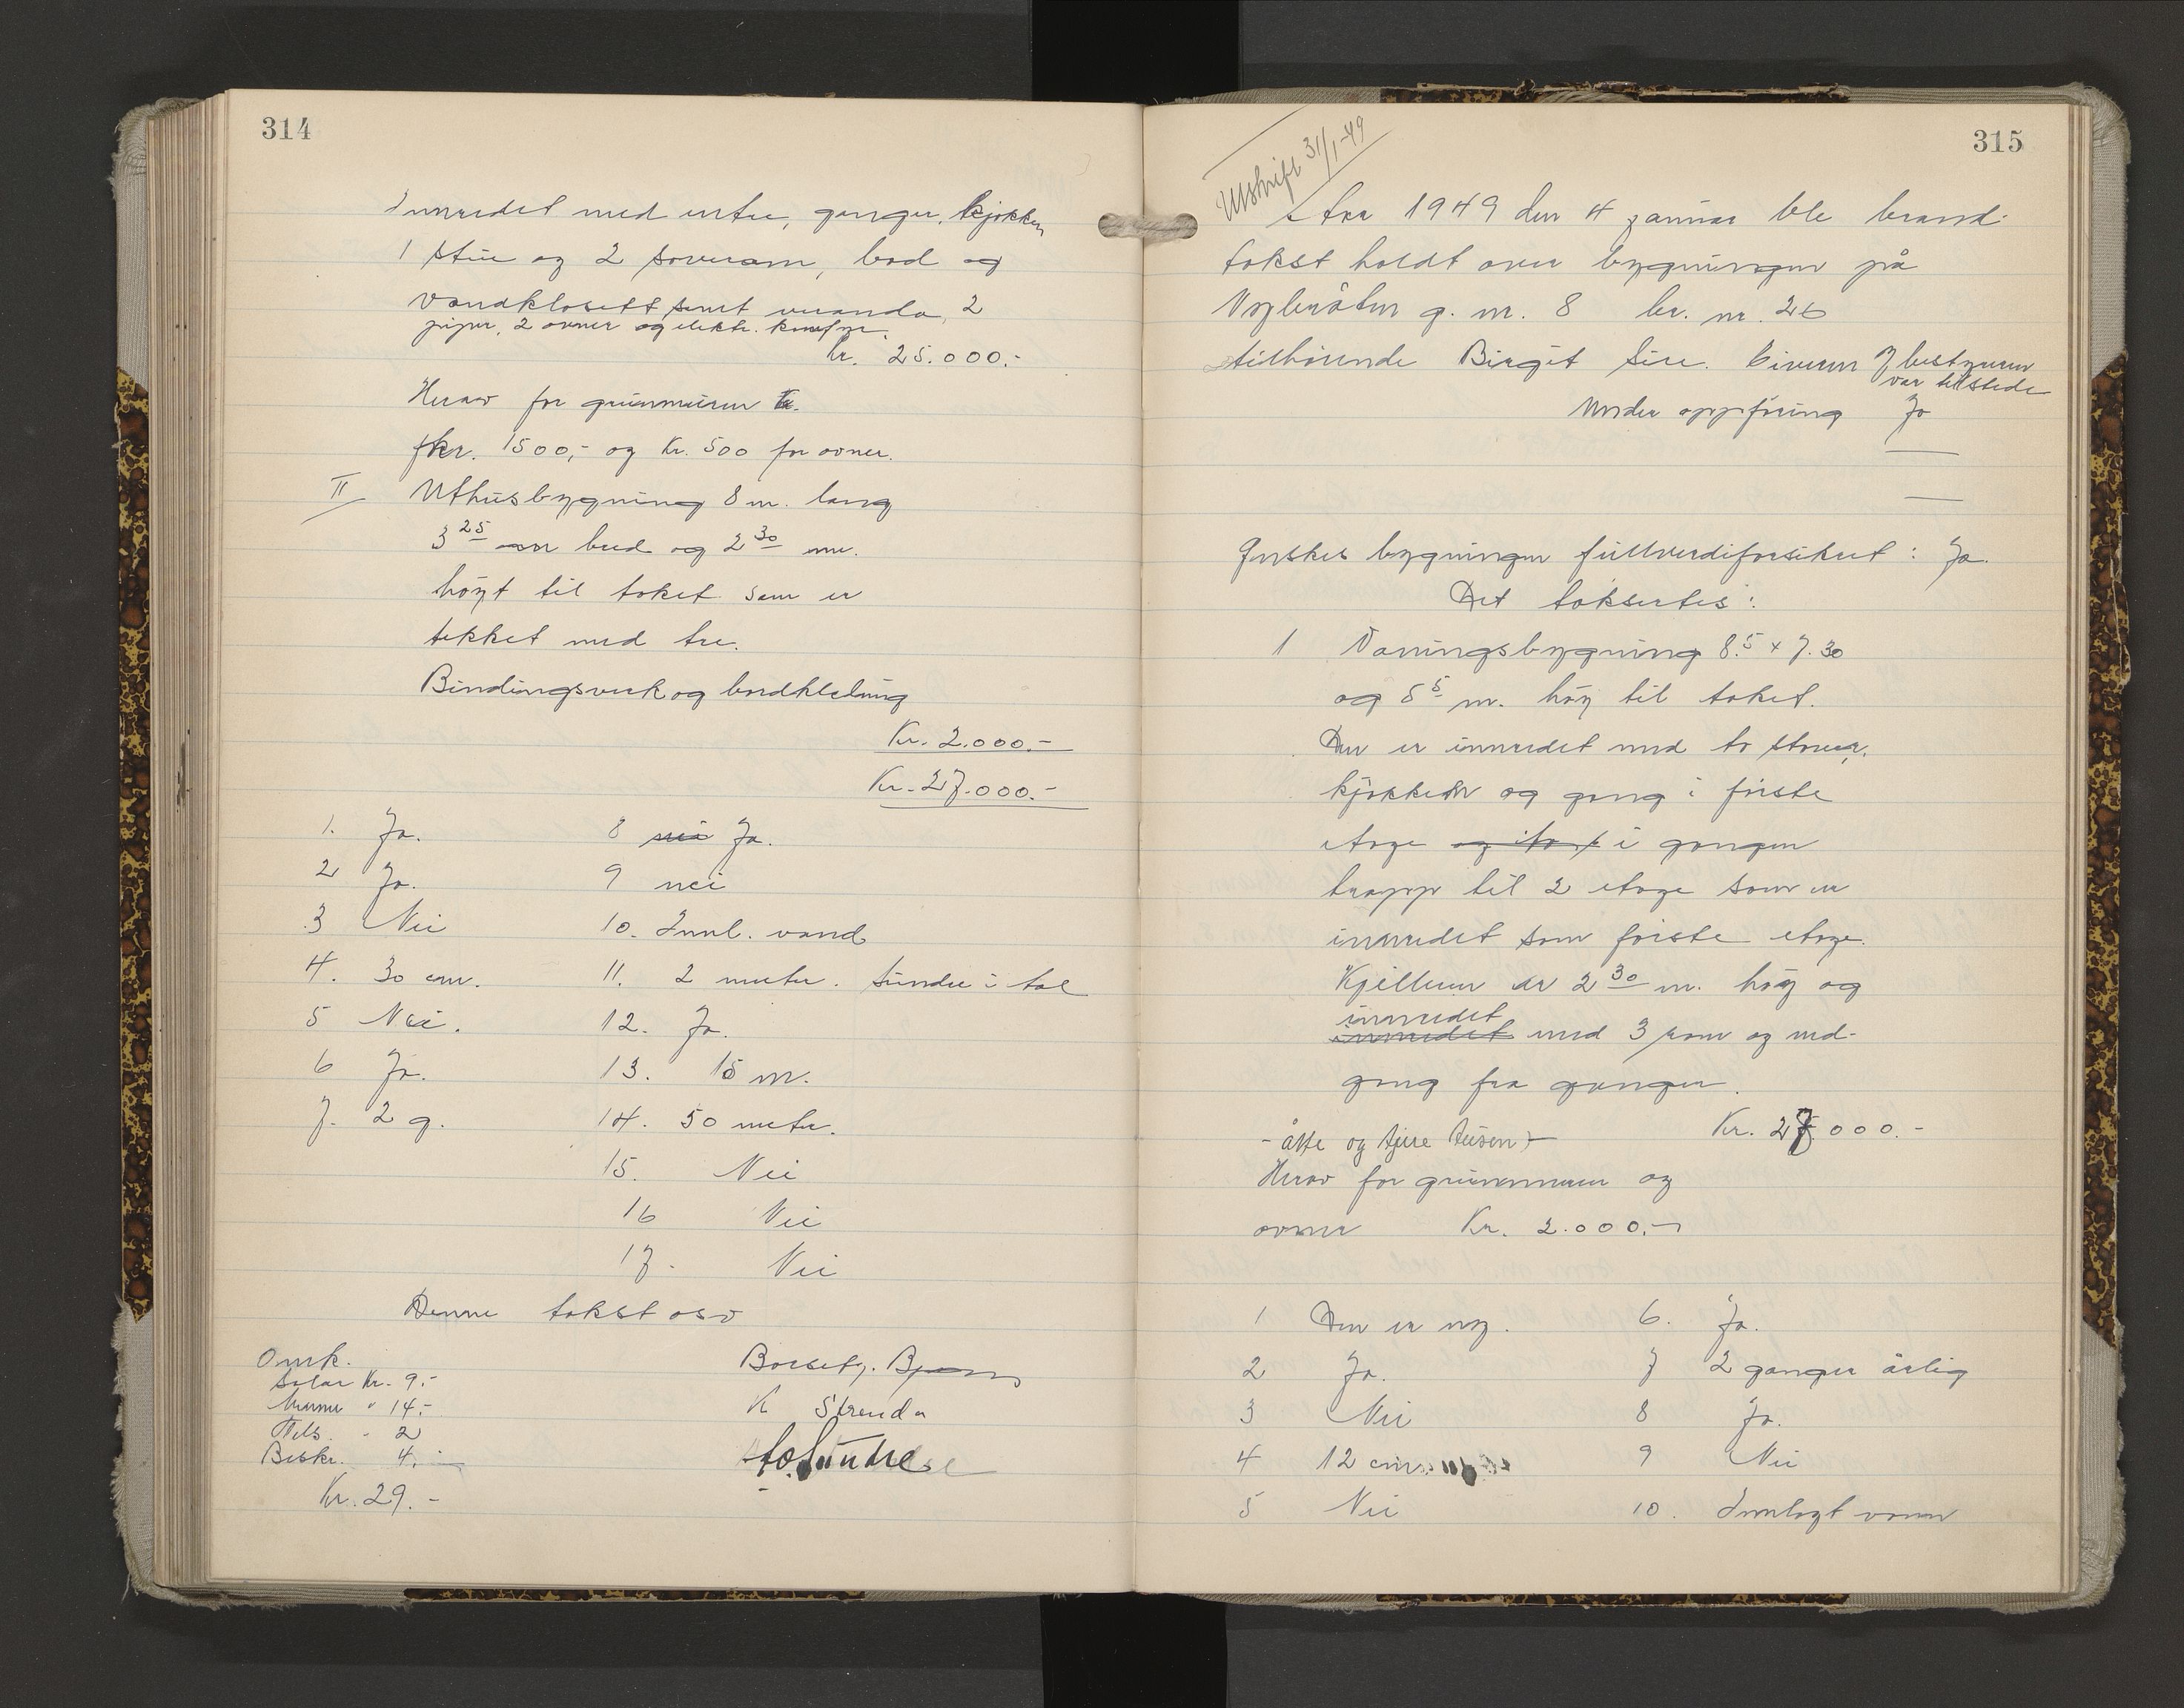 314
Innredet med entre, ganger, kjøkken
1 stue og 2 soverom, bad og
vandklosett samt veranda, 2
piper, 2 ovner og elektr. komfyr.
Kr. 25.000.-
Herav for grunmuren
kr. 1500,- og Kr. 500 for ovner.
II Uthusbygning 8 m. lang
3 25 m bred og 2 30 m.
höyt til taket som er
tekket med tre.
Bindingsverk og bordkledning
Kr. 2.000.-
Kr. 27.000.-
1. Ja. 8 nei Ja.
2 Ja. 9 nei
3 Nei 10. Innl. vand
4. 30 cm. 11. 2 meter. tundre i tal
5 Nei. 12. Ja.
6 Ja. 13. 15 m.
7. 2 g. 14. 50 meter.
15. Nei
16 Nei
17. Nei
Denne takst osv
Omk.
Salær Kr. 9.-
14.-
2
Beskr. 4.-
Kr. 29.-
K Strenda
315
Utskrift 31/1-49
Aar 1949 den 4 januar ble brand
takst holdt over bygningen på
g. nr. 8 br. nr. 26
tilhörende Birgit Eieren J bestyreren
var tilstede
Under oppföring Ja
Önskes bygningen fullverdiforsikret : Ja.
Det taksertes :
1 Vaningsbygning 8.5 x 7.30
og 5 5 m. höy til taket.
Den er innredet med to stover,
kjøkken og gang i förste
etage i gangen
trapp til 2 etage som er
innredet som förste etage.
Kjelleren er 2 30 m. höy og
innredet
innredet med 3 rom og ned-
gang fra gangen.
Kr. 27000.-
- åtte og tjue tusen -
Herav for grunnmuren og
ovner Kr. 2.000.-
1 Den er ny. 6. Ja.
2 Ja. 7 2 ganger årlig
3 Nei 8 Ja.
4 12 cm. 9 Nei
5 Nei 10. Innlagt vann